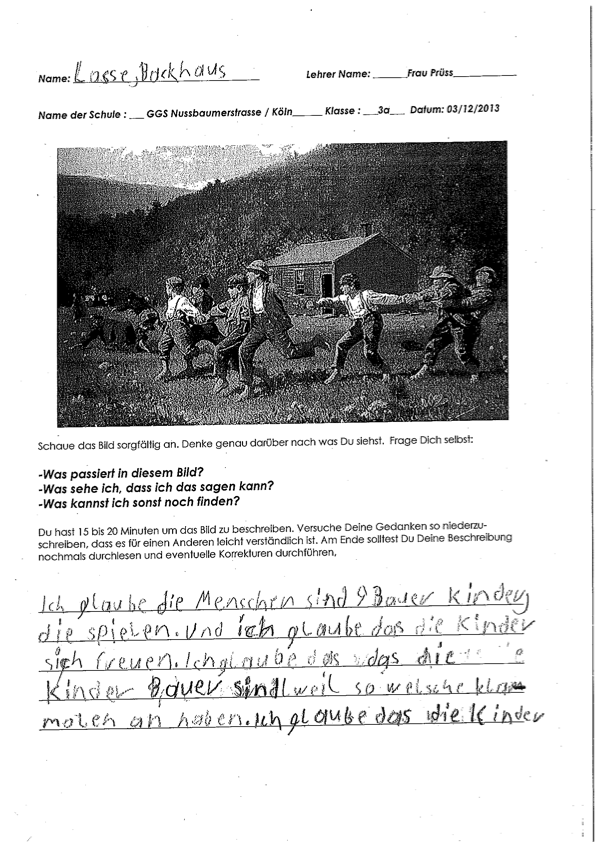 Name: Lasse, Backhaus Lehrer Name: ______Frau Prüss____________
Name der Schule : ___ GGS Nussbaumerstrasse / Köln______ Klasse : ___3a___ Datum: 03/12/2013
Schaue das Bild sorgfältig an. Denke genau darüber nach was Du siehst. Frage Dich selbst:
-Was passiert in diesem Bild?
-Was sehe ich, dass ich das sagen kann?
-Was kannst ich sonst noch finden?
Du hast 15 bis 20 Minuten um das Bild zu beschreiben. Versuche Deine Gedanken so niederzu-
schreiben, dass es für einen Anderen leicht verständlich ist. Am Ende solltest Du Deine Beschreibung
nochmals durchlesen und eventuelle Korrekturen durchführen.
Ich glaube die Menschen sind 9 Bauer Kinder,
die spielen. Und ich glaube das die Kinder
sich freuen. Ich glaube das das die
Kinder Bauer sind weil so welsche klam
moten an haben. Ich glaube das die Kinder